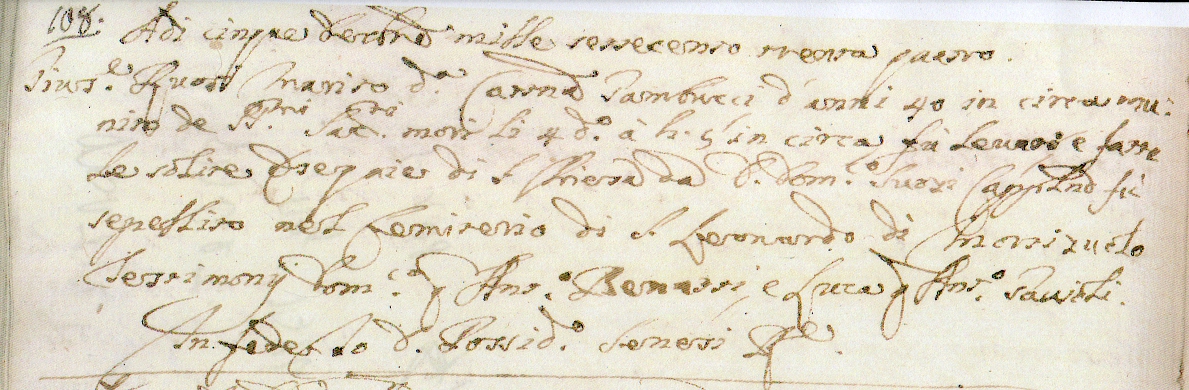 108.
Adi cinque decbre mille seicento trenta quatro.
Gius.e marito d.a Cattna Tambucci d'anni 40 in circa mu:
nito de SS.mi Sac.ti morì li 4 d.o à h: 5 in circa fù levato e fatte
le solite Esequie di S. Chiesa da D. Dom.co Cappno fù
sepellito nel Cemiterio di S. Leonardo di Montizuolo
Testimonij Dom.co q Ant.o Benassi, e Luca q Ant.o Tavoli.
In fede Io D. Possid.o Senessi